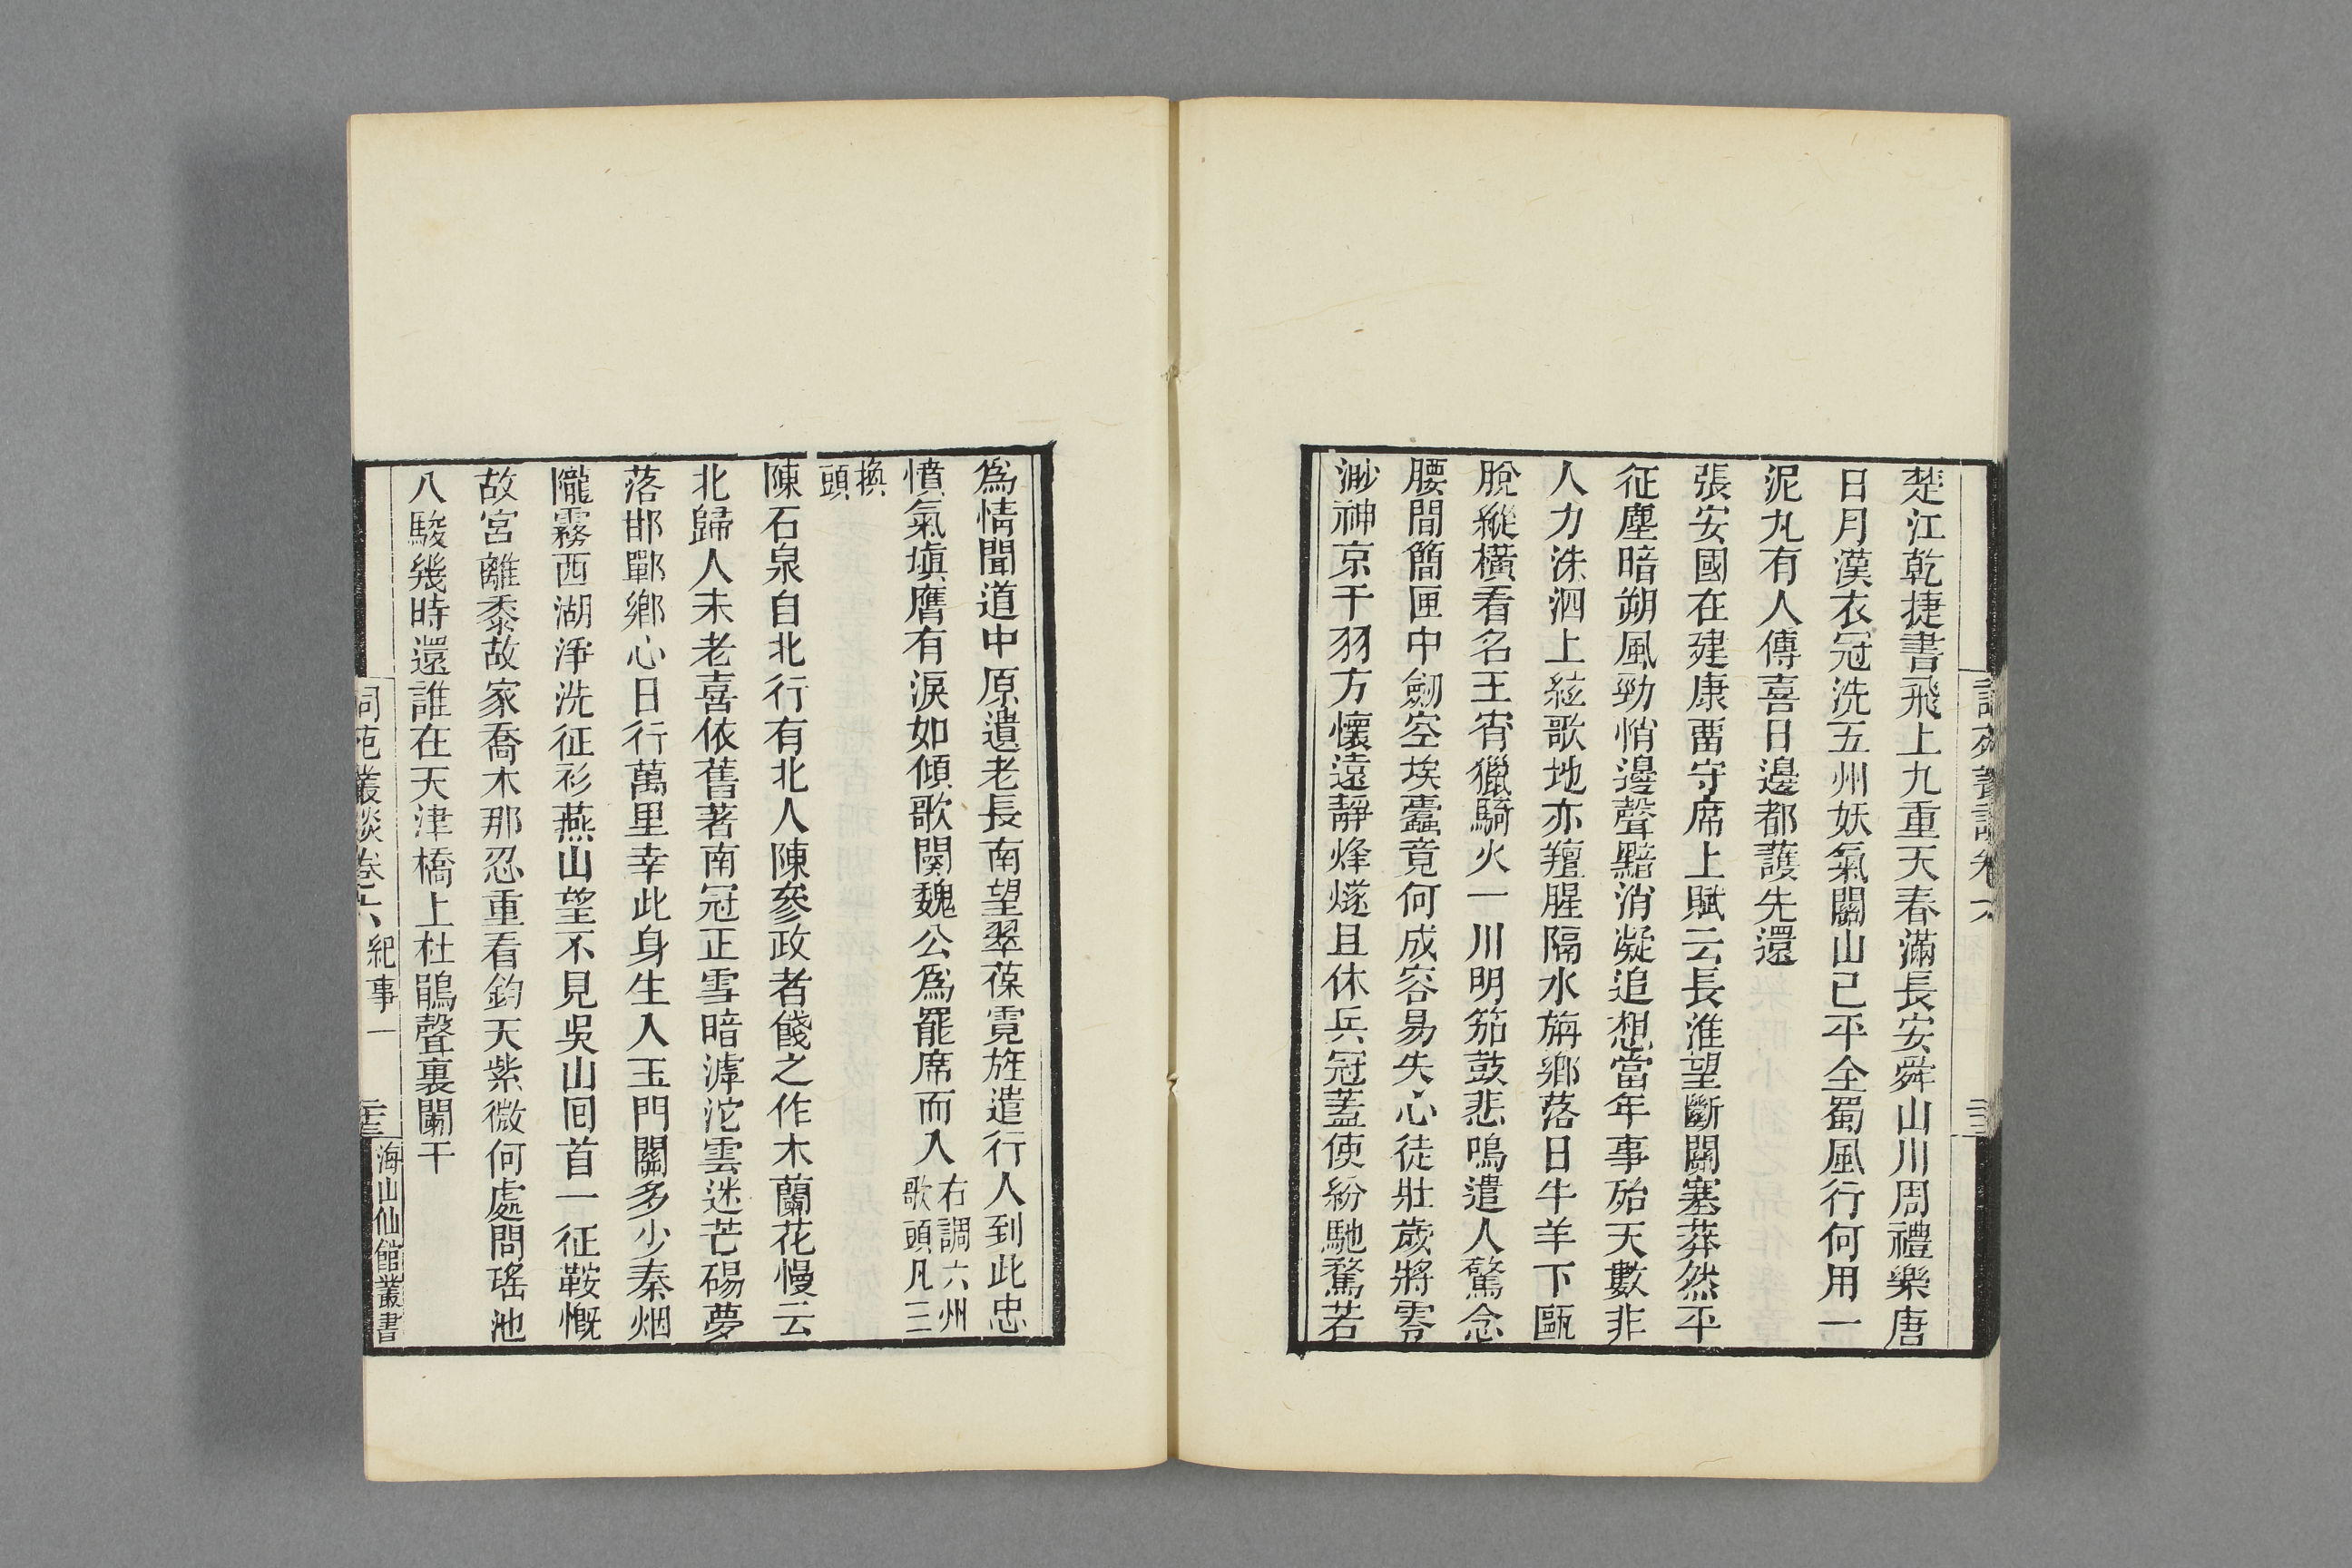 楚江乾捷書飛上九重天春滿長安舜山川周禮樂唐
日月漢衣冠洗五州妖氣關山已平全蜀風行何用一
泥丸有人傳喜日邊都護先還
張安國在建康畱守席上賦云長淮望斷關塞莽然平
征塵暗朔風勁悄邊聲黯消凝追想當年事殆天數非
人力洙泗上絃歌地亦羶腥隔水旃鄉落日牛羊下甌
脫縱橫看名王宵獵騎火一川明笳鼓悲鳴遣人驚念
腰間箭匣中劒空埃蠹竟何成容易失心徒壯歲將零
渺神京干羽方懷遠靜烽燧且休兵冠蓋使紛馳騖若
為情聞道中原遺老長南望翠葆霓旌遣行人到此忠
憤氣塡膺有淚如傾歌闋魏公為罷席而入右調六州歌頭凡三
換頭
陳石泉自北行有北人陳參政者餞之作木蘭花慢云
北歸人未老喜依舊著南冠正雪暗滹沱雲迷芒碭夢
落邯鄲鄉心日行萬里幸此身生入玉門關多少秦烟
隴霧西湖淨洗征衫燕山望不見吳山囘首一征鞍慨
故宮離黍故家喬木那忍重看鈞天紫微何處問瑤池
八駿幾時還誰在天津橋上杜鵑聲裏闌干
詞苑叢談卷六 紀事一
海山仙館叢書